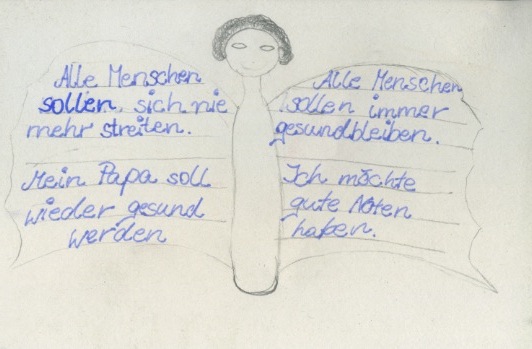 Alle Menschen
sollen sich nie
mehr streiten.
Mein Papa soll
wieder gesund
werden
Alle Menschen
sollen immer
gesundbleiben.
Ich möchte
gute Noten
haben.